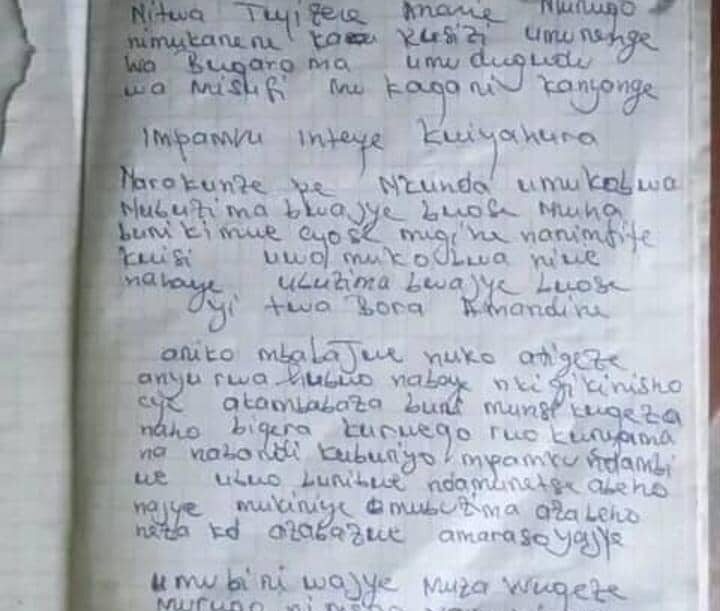 Nitwa Tuyizere Marie Murugo
nimukanene ka Rusizi umurenge
wo Bugarama umudugudu
wa Misufi mu kagari kanyonge
impamvu inteye kwiyahura
Narokunze pe Nkunda umukobwa
Mubuzima bwajye bwose Muha
buri kimwe cyose migihe narimfite
kwisi uwo mukobwa niwe
nabaye ubuzima bwajye bwose
yitwa Bora Amandine
ariko mbabajwe nuko atigeze
anyurwa ahubwo nabaye nkigikinisho
cye akambabaza buri munsi kugeza
naho bigera kurwego rwo kuryama
na nabandi kuburiyo mpamvu ndambi
we ubuo buribwe ndamuretse abeho
najye mukiniye mubuzima azabeho
neza kd azabazwe amaraso yajye
umubiri wajye Muza wugeze